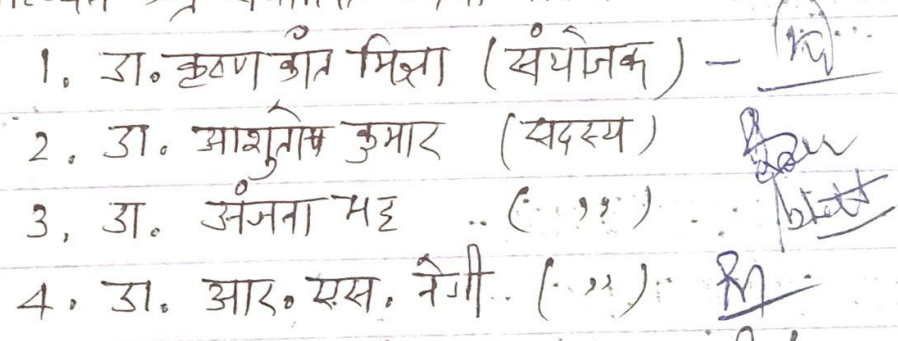 1. डा. कृष्ण कांत मिश्रा (संयोजक) -
2. डा. आशुतोष कुमार (सदस्य)
3. डा. अंजना भट्ट .. ( ,, )
4. डा. आर. एस. नेगी . ( ,, )